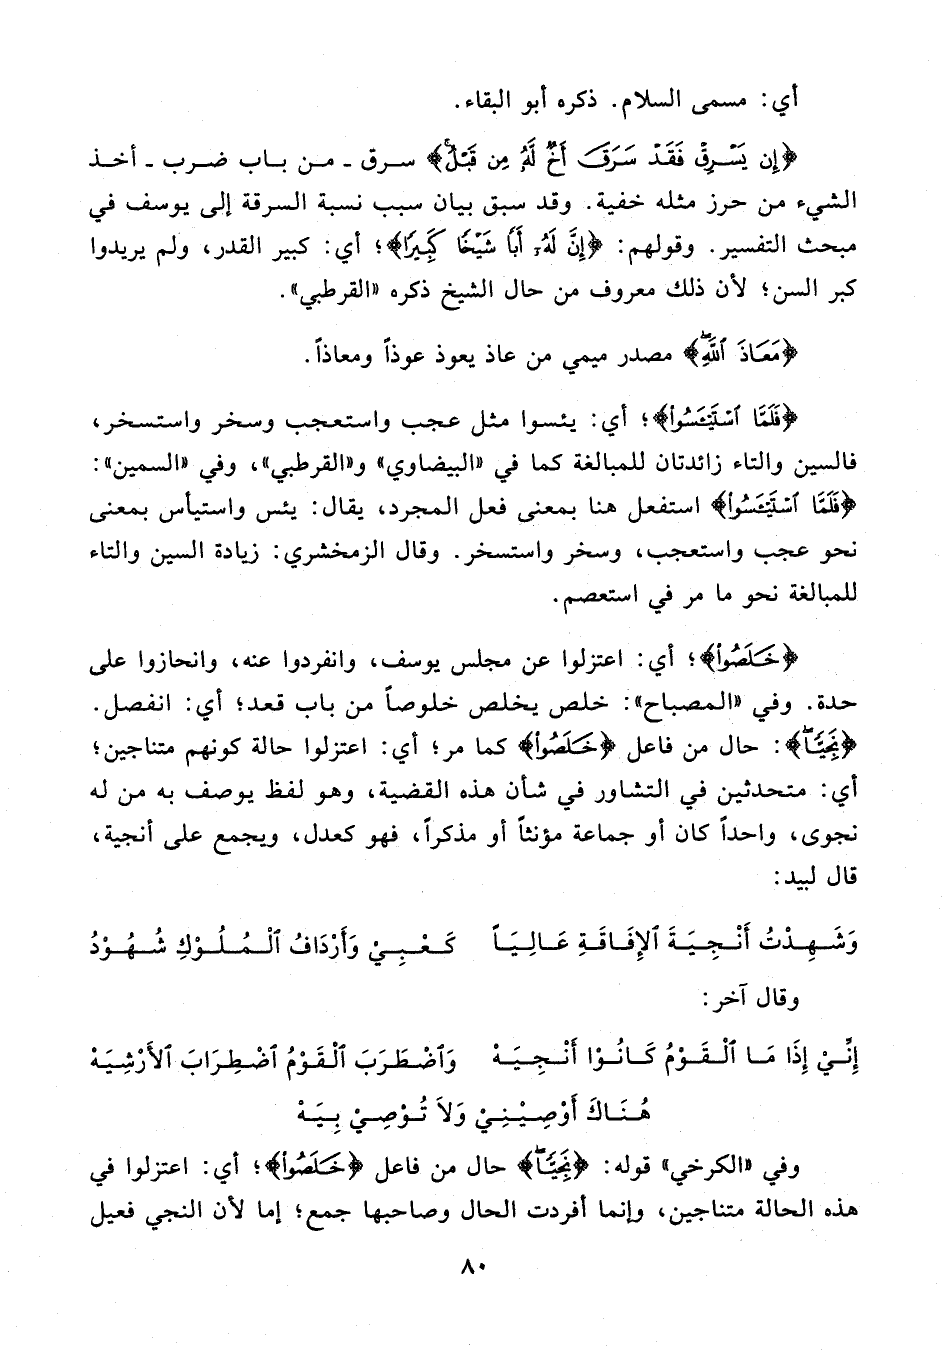 أي: مسمى السلام. ذكره أبو البقاء.
﴿إِن يَسْرِقْ فَقَدْ سَرَقَ أَخٌ لَّهُ مِن قَبْلُ﴾ سرق ـ من باب ضرب ـ أخذ
الشيء من حرز مثله خفية. وقد سبق بيان سبب نسبة السرقة إلى يوسف في
مبحث التفسير. وقولهم: ﴿إِنَّ لَهُۥ أَبًا شَيْخًا كَبِيرًا﴾؛ أي: كبير القدر، ولم يريدوا
كبر السن؛ لأن ذلك معروف من حال الشيخ ذكره «القرطبي».
﴿مَعَاذَ ٱللَّهِ﴾ مصدر ميمي من عاذ يعوذ عوذاً ومعاذاً.
﴿فَلَمَّا ٱسْتَيْـَٔسُوا۟﴾؛ أي: يئسوا مثل عجب واستعجب وسخر واستسخر،
فالسين والتاء زائدتان للمبالغة كما في «البيضاوي» و«القرطبي»، وفي «السمين»:
﴿فَلَمَّا ٱسْتَيْـَٔسُوا۟﴾ استفعل هنا بمعنى فعل المجرد، يقال: يئس واستيأس بمعنى
نحو عجب واستعجب، وسخر واستسخر. وقال الزمخشري: زيادة السين والتاء
للمبالغة نحو ما مر في استعصم.
﴿خَلَصُوا۟﴾؛ أي: اعتزلوا عن مجلس يوسف، وانفردوا عنه، وانحازوا على
حدة. وفي «المصباح»: خلص يخلص خلوصاً من باب قعد؛ أي: انفصل.
﴿نَجِيًّا﴾: حال من فاعل ﴿خَلَصُوا۟﴾ كما مر؛ أي: اعتزلوا حالة كونهم متناجين؛
أي: متحدثين في التشاور في شأن هذه القضية، وهو لفظ يوصف به من له
نجوى، واحداً كان أو جماعة مؤنثاً أو مذكراً، فهو كعدل، ويجمع على أنجية،
قال لبيد:
وَشَهِدْتُ أَنْجِيَةَ ٱلإِفَاقَةِ عَالِيَاً كَعْبِيْ وَأَرْدَافُ ٱلْمُلُوْكِ شُهُوْدُ
وقال آخر:
إِنِّيْ إِذَا مَا ٱلْقَوْمُ كَانُوْا أَنْجِيَهْ وَٱضْطَرَبَ ٱلْقَوْمُ ٱضْطِرَابَ ٱلأَرْشِيَهْ
هُنَاكَ أَوْصِيْنِيْ وَلاَ تُوْصِيْ بِيَهْ
وفي «الكرخي» قوله: ﴿نَجِيًّا﴾ حال من فاعل ﴿خَلَصُوا۟﴾؛ أي: اعتزلوا في
هذه الحالة متناجين، وإنما أفردت الحال وصاحبها جمع؛ إما لأن النجي فعيل
٨٠